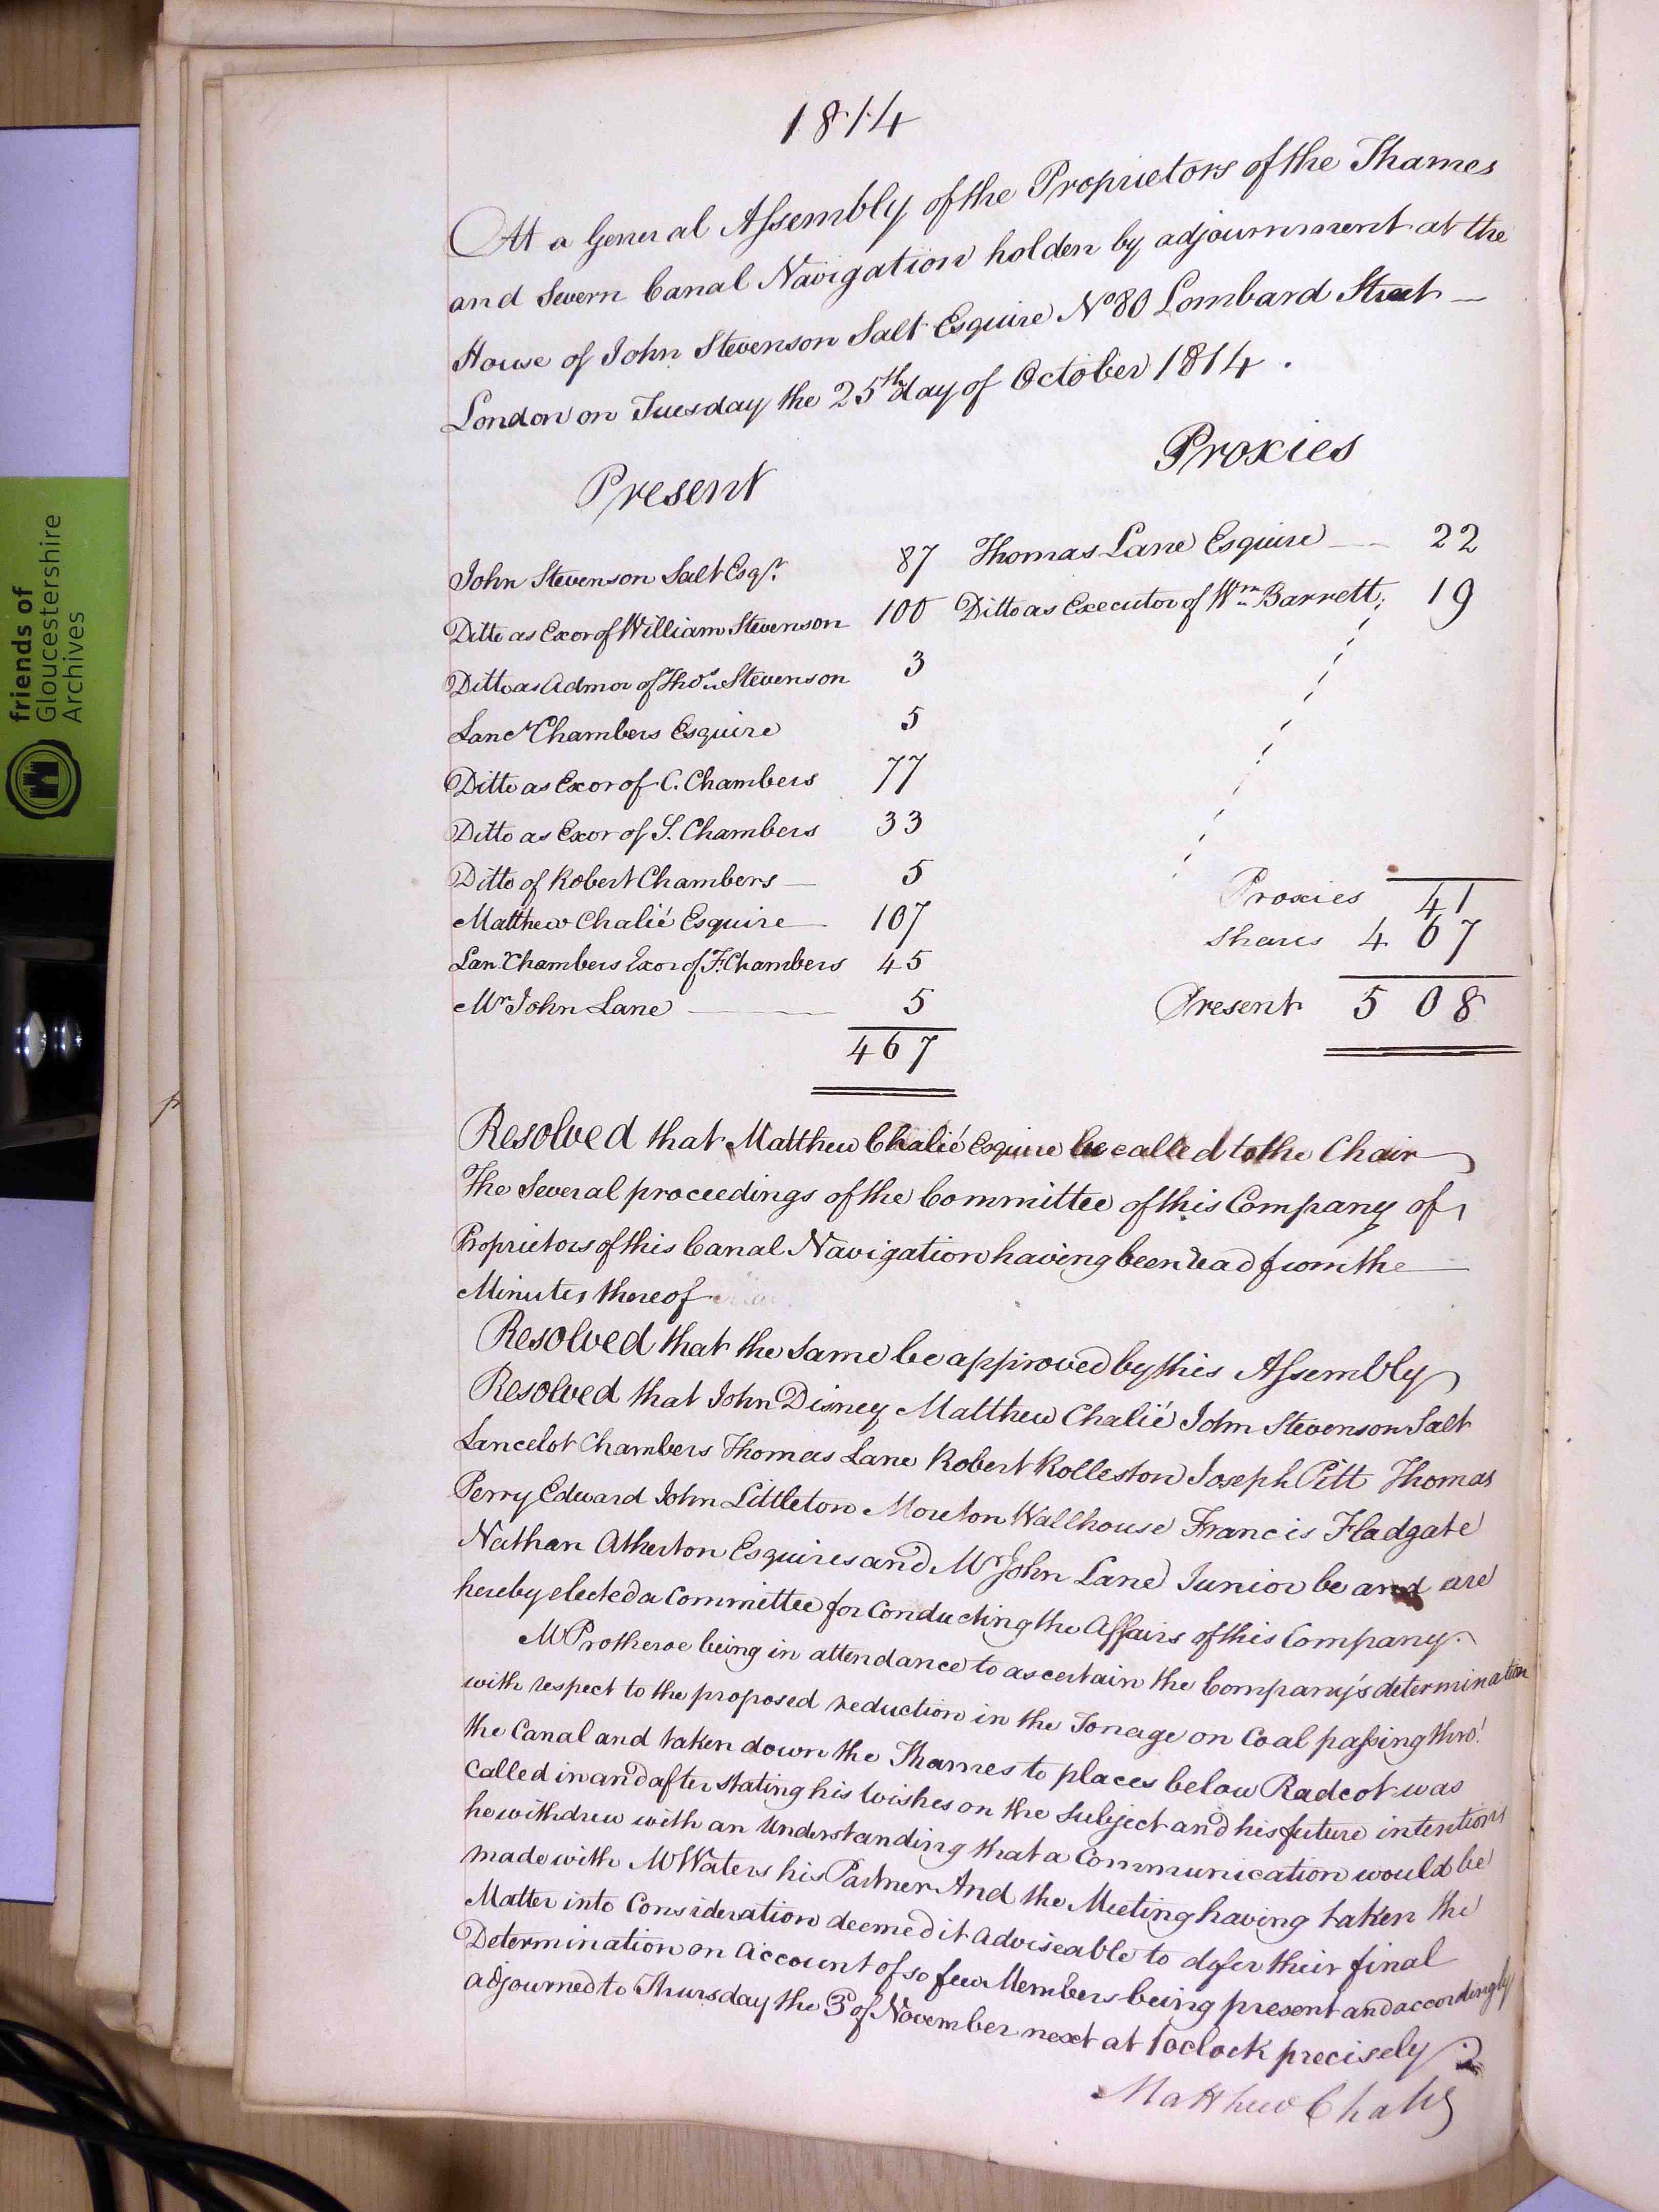 1814
At a General Assembly of the Proprietors of the Thames
and Severn Canal Navigation holden by adjournment at the
House of John Stevenson Salt Esquire No 80 Lombard Street —
London on Tuesday the 25th day of October 1814.
Present
Proxies
John Stevenson Salt Esqr. 87 Thomas Lane Esquire — 22
Ditto as Exor of William Stevenson 100 Ditto as Executor of Wm Barrett; 19
Ditto as Admor of Thos. Stevenson 3
Lancr Chambers Esquire 5
Ditto as Exor of C. Chambers 77
Ditto as Exor of S. Chambers 33
Ditto of Robert Chambers — 5
Proxies 41
Matthew Chalié Esquire — 107
Shares 467
Lanr Chambers Exor of F. Chambers 45
Mr John Lane — 5
Present 508
467
Resolved that Matthew Chalié Esquire be called to the Chair
The Several proceedings of the Committee of this Company of
Proprietors of this Canal Navigation having been read from the —
Minutes thereof
Resolved that the Same be approved by this Assembly
Resolved that John Disney Matthew Chalié John Stevenson Salt
Lancelot Chambers Thomas Lane Robert Rolleston Joseph Pitt Thomas
Perry Edward John Littleton Moreton Wallhouse Francis Fladgate
Nathan Atherton Esquires and Mr John Lane Junior be and are
hereby elected a Committee for Conducting the Affairs of this Company.
Mr Protheroe being in attendance to ascertain the Company's determination
with respect to the proposed reduction in the Tonage on Coal passing thro'
the Canal and taken down the Thames to places below Radcot was
Called in and after stating his Wishes on the Subject and his future intentions
he withdrew with an Understanding that a Communication would be
made with Mr Waters his Partner And the Meeting having taken the
Matter into Consideration deemed it adviseable to defer their final
Determination on Account of so few Members being present and accordingly
adjourned to Thursday the 3d of November next at 1 oclock precisely
Matthew Chalié
friends of
Gloucestershire
Archives